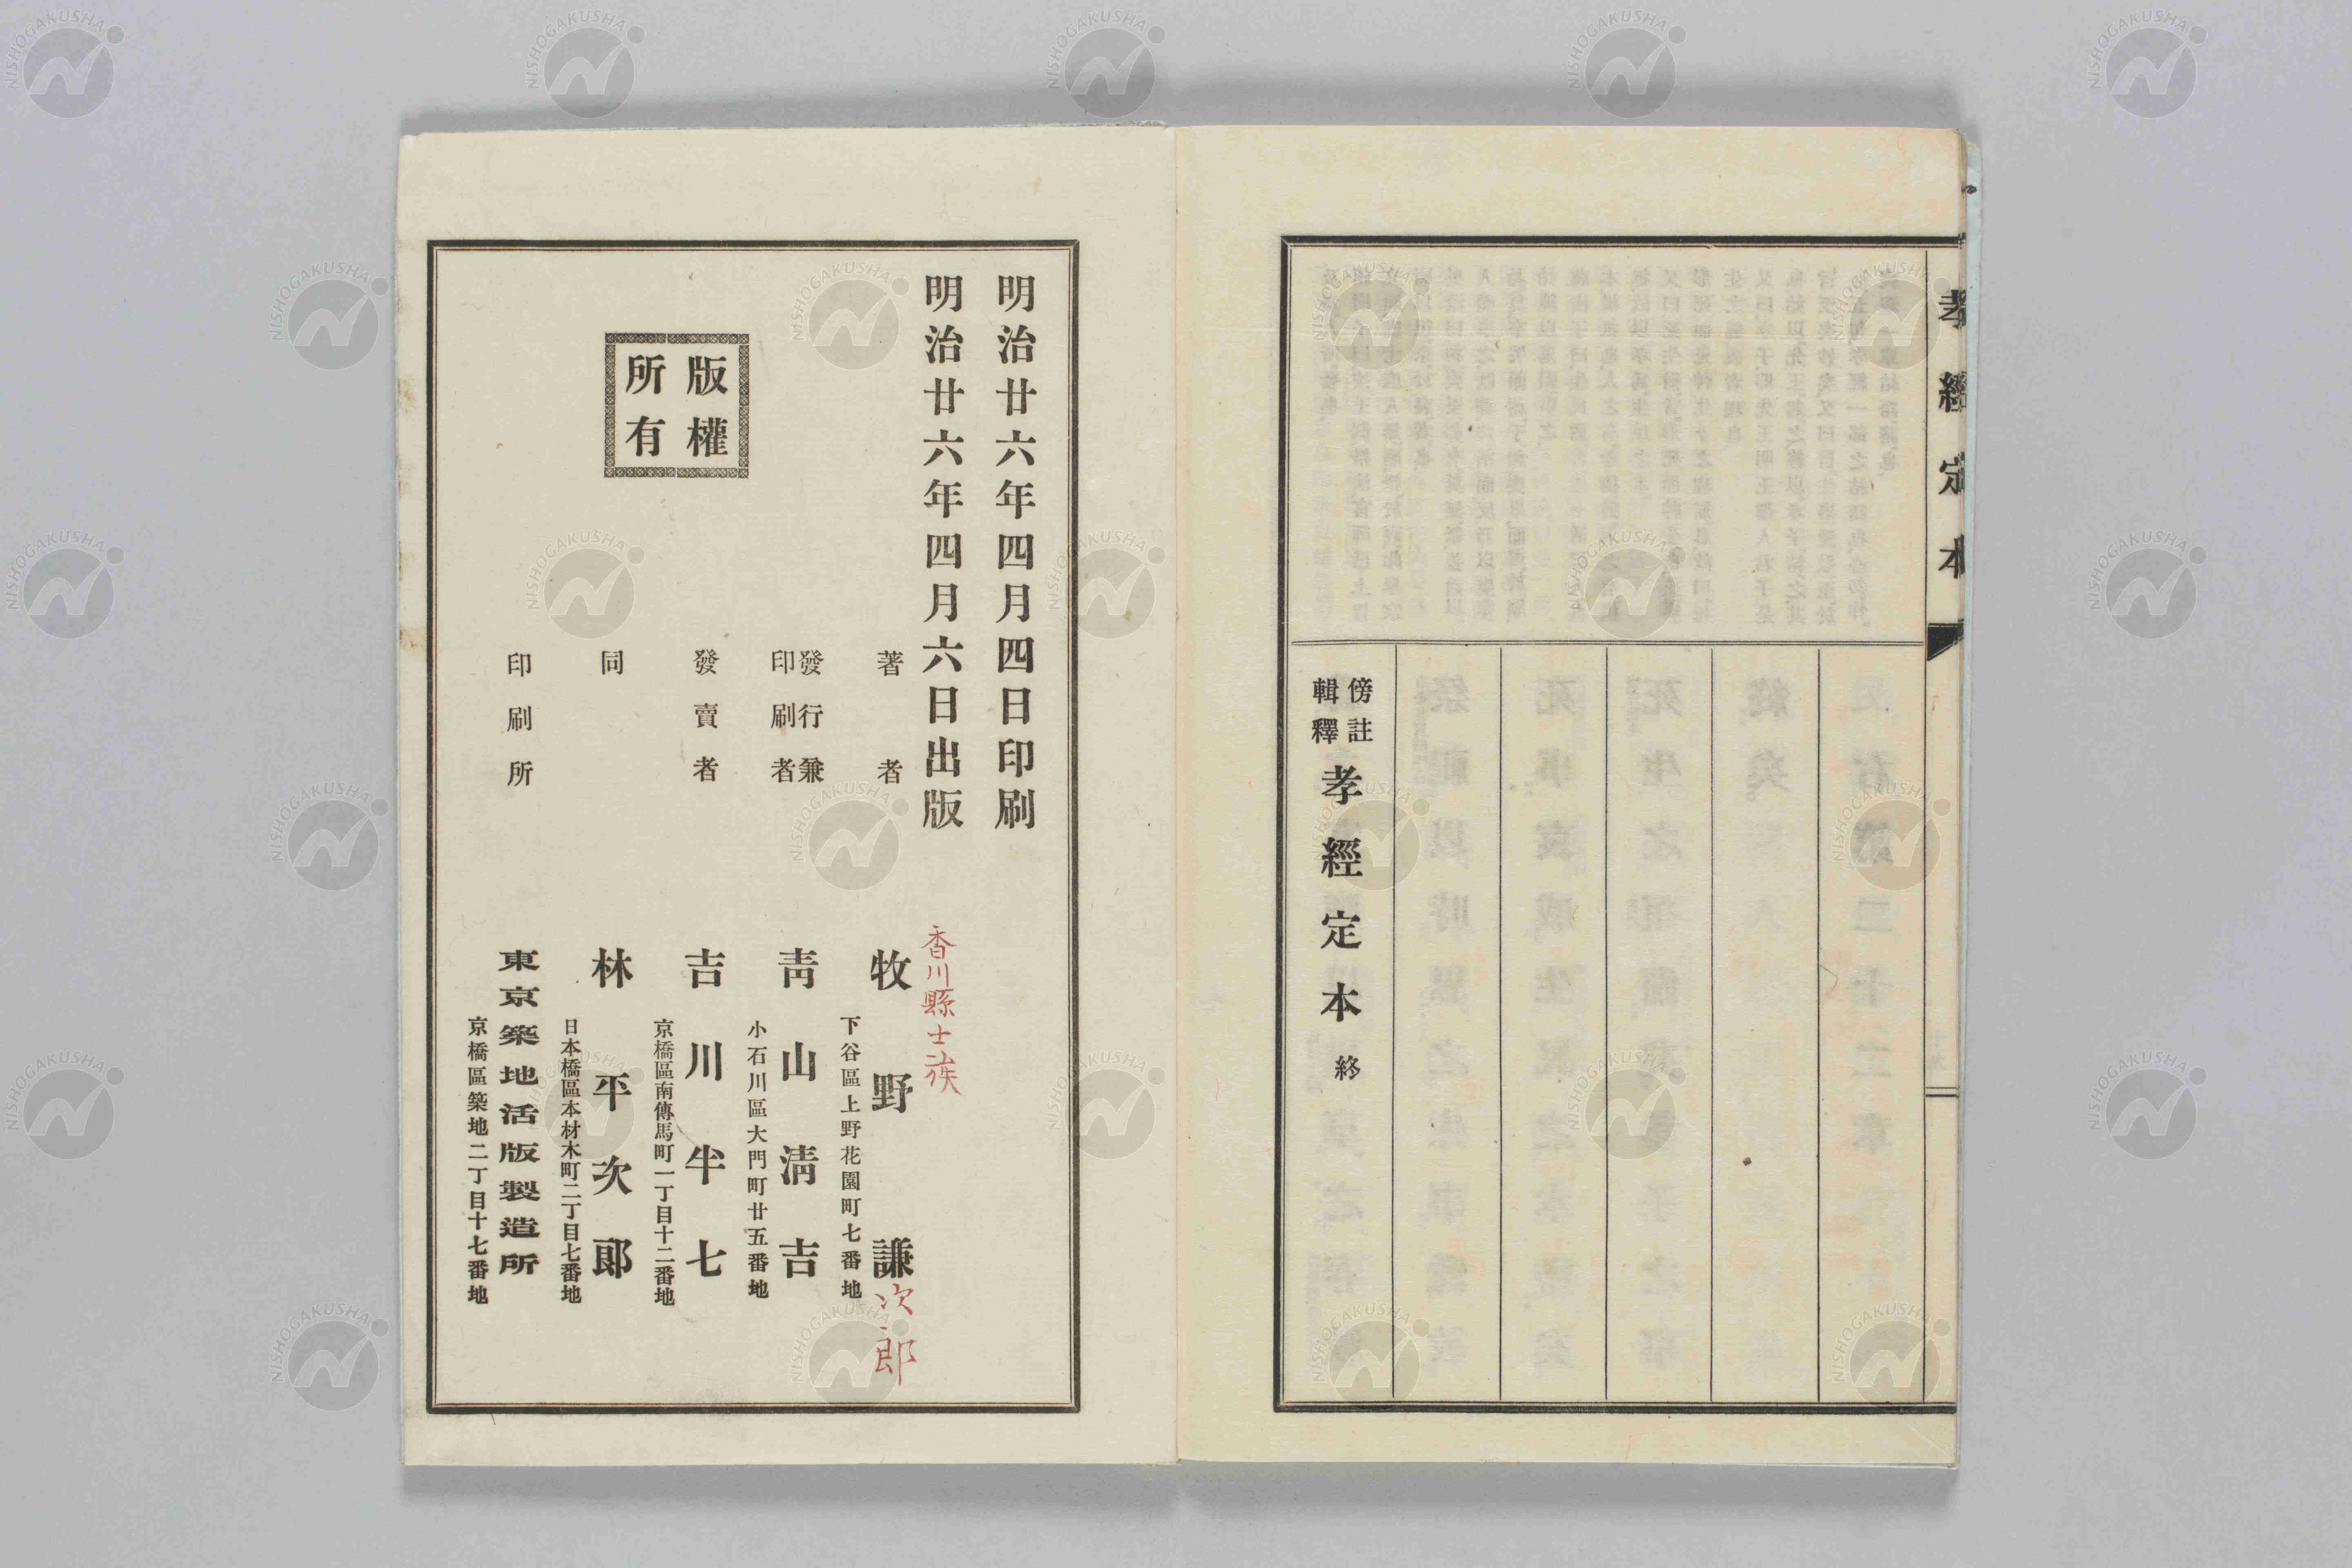 孝經定本
傍註
輯釋
孝經定本 終
明治廿六年四月四日印刷
明治廿六年四月六日出版
版權
所有
香川縣士族
著者 牧野謙次郎
下谷區上野花園町七番地
發行兼
印刷者
靑山淸吉
小石川區大門町廿五番地
發賣者 吉川半七
京橋區南傳馬町一丁目十二番地
同 林平次郞
日本橋區本材木町二丁目七番地
印刷所 東京築地活版製造所
京橋區築地二丁目十七番地
NISHOGAKUSHA